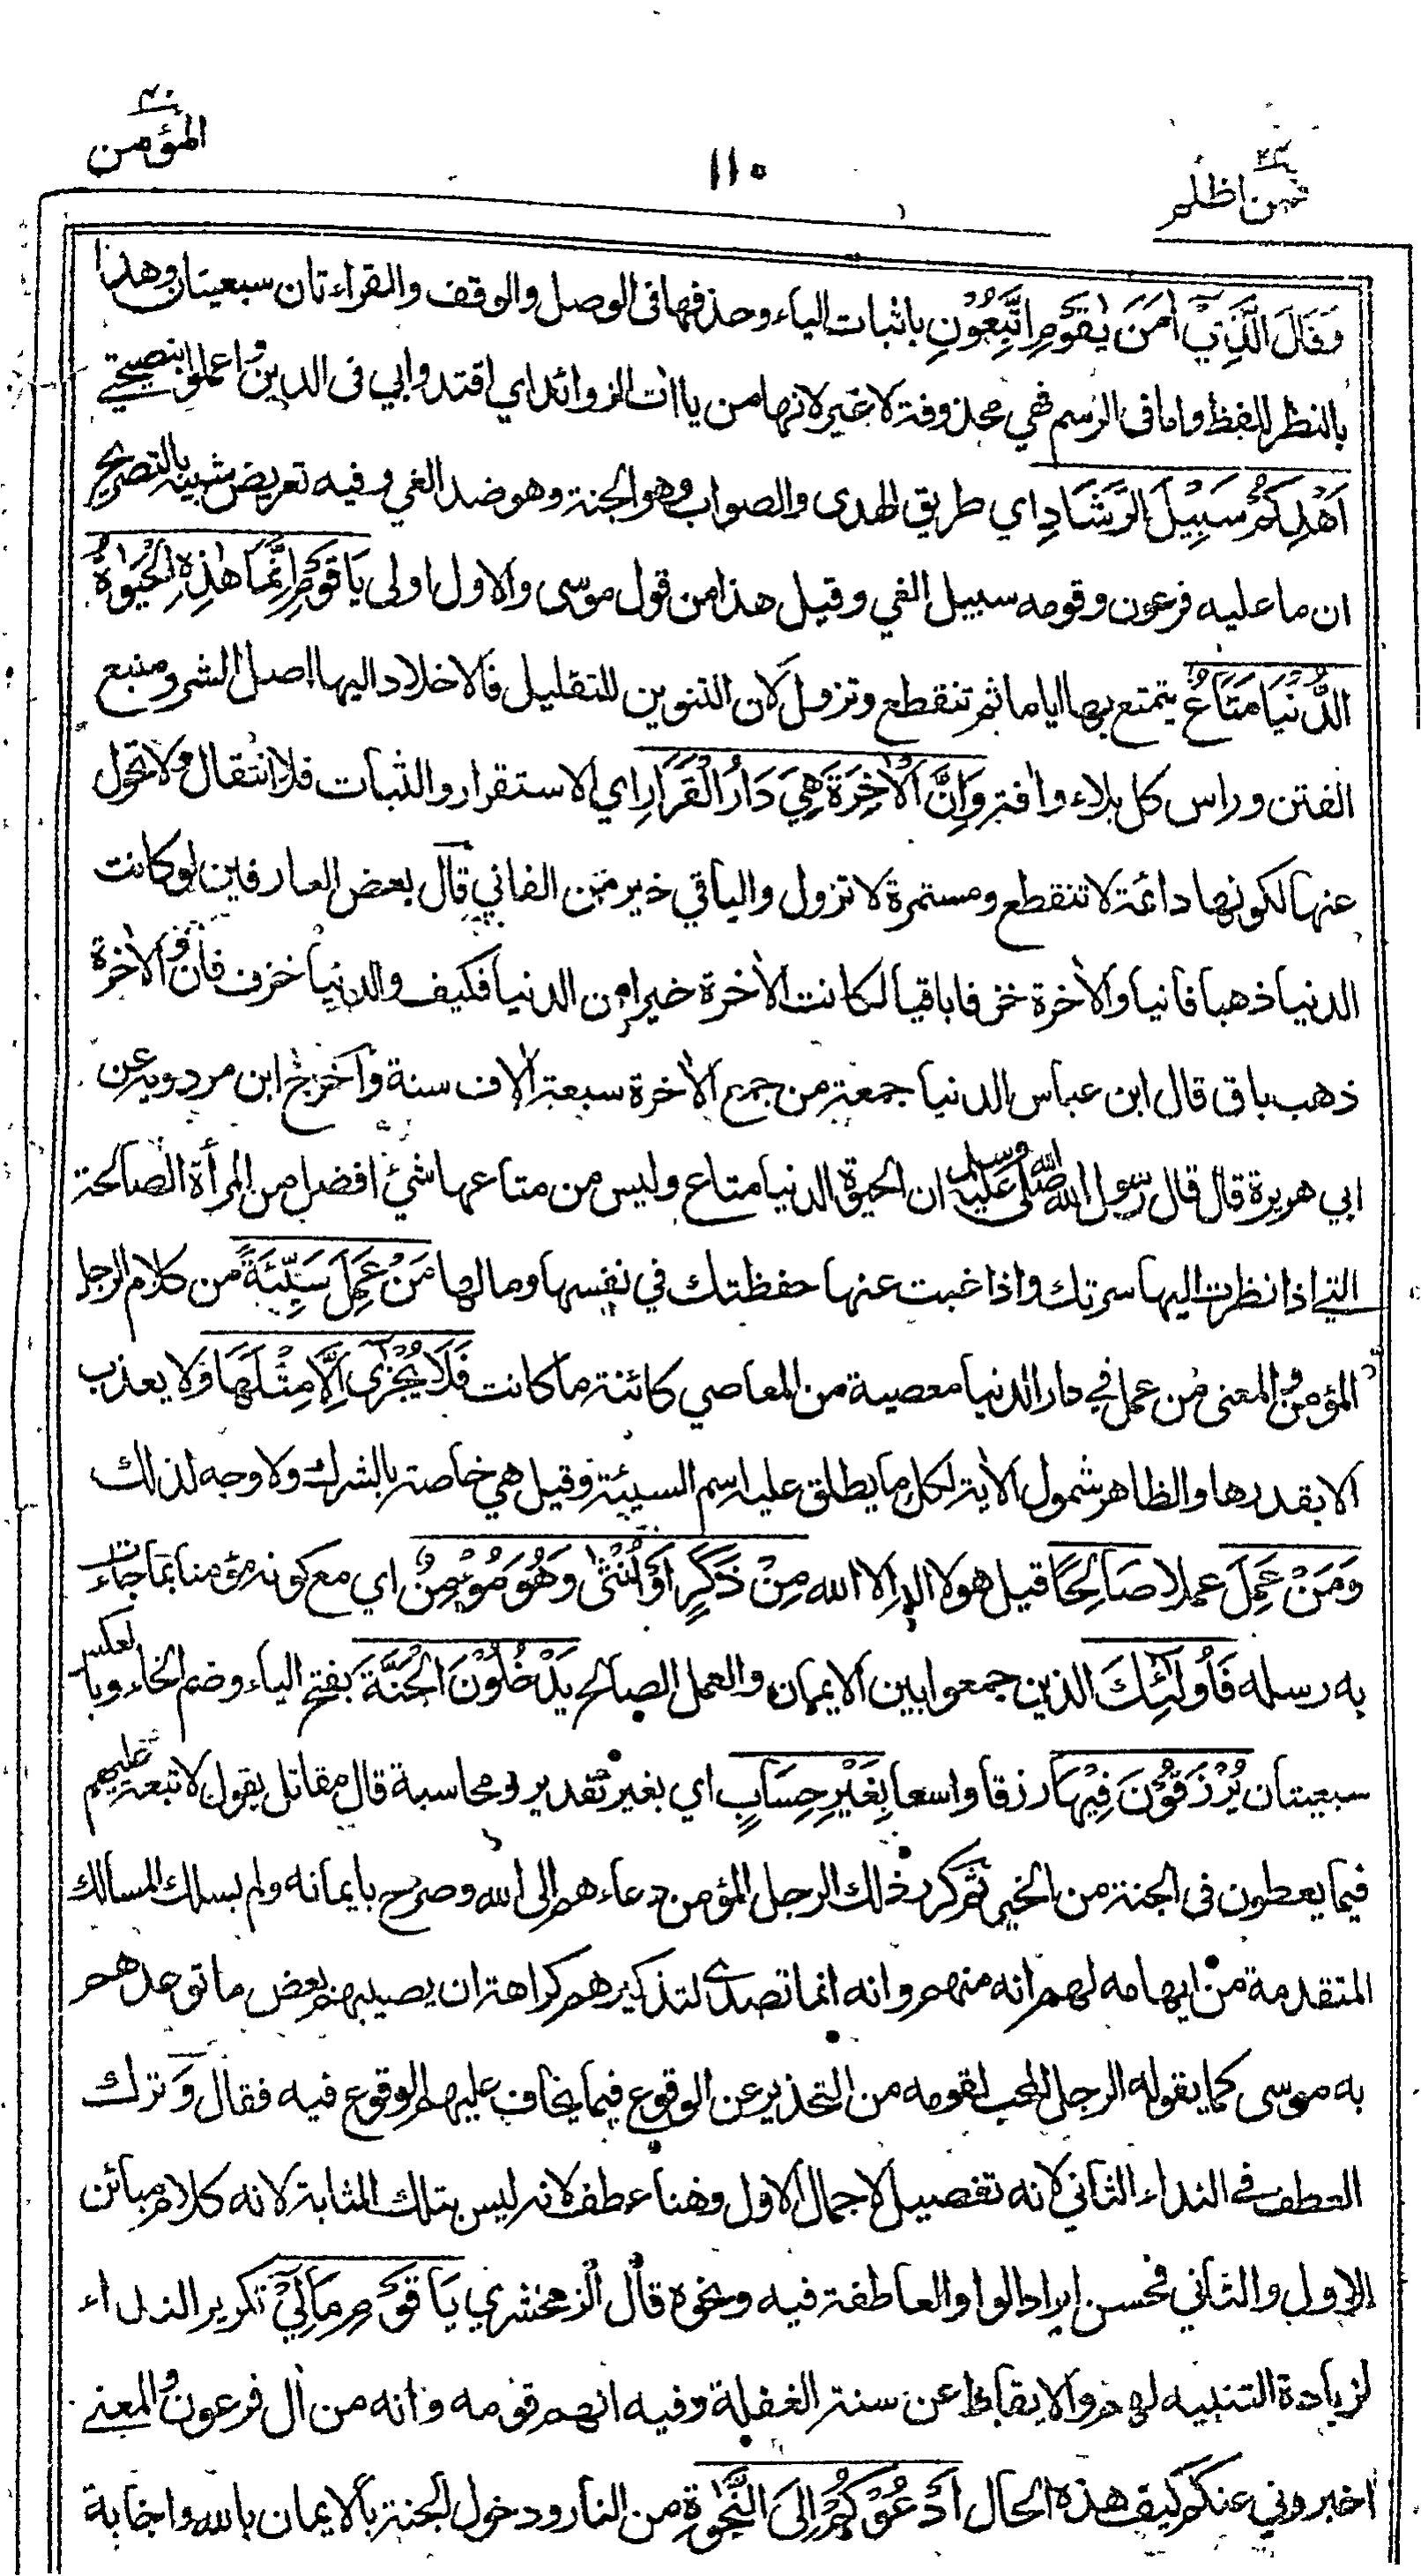 فمن اظلم ٢٤
١١٠
المؤمن ٤٠
وَقَالَ الَّذِيْٓ اٰمَنَ يٰقَوْمِ اتَّبِعُوْنِ باثبات الياء وحذفها فى الوصل والوقف والقراءتان سبعيتان وهذا
بالنظر للفظ واما فى الرسم فهي محذوفة لا غير لانها من ياآت الزوائد اي اقتدوا بي فى الدين واعملوا بنصيحتي
اَهْدِكُمْ سَبِيْلَ الرَّشَادِ اي طريق الهدى والصواب وهو الجنة وهو ضد الغي وفيه تعريض شبيه بالتصريح
ان ما عليه فرعون وقومه سبيل الغي وقيل هذا من قول موسى والاول اولى يَا قَوْمِ اِنَّمَا هٰذِهِ الْحَيٰوةُ
الدُّنْيَا مَتَاعٌ يتمتع بها اياما ثم تنقطع وتزول لان التنوين للتقليل فالاخلاد اليها اصل الشر ومنبع
الفتن وراس كل بلاء وافة وَاِنَّ الْاٰخِرَةَ هِيَ دَارُ الْقَرَارِ اي الاستقرار والثبات فلا انتقال ولا تحول
عنها لكونها دائمة لا تنقطع ومستمرة لا تزول والباقي خير من الفاني قال بعض العارفين لو كانت
الدنيا ذهبا فانيا والاٰخرة خزفا باقيا لكانت الاٰخرة خيرا من الدنيا فكيف والدنيا خزف فان والاٰخرة
ذهب باق قال ابن عباس الدنيا جمعة من جمع الاٰخرة سبعة اٰلاف سنة واخرج ابن مردويه عن
ابي هريرة قال قال رسول الله صلى الله عليه وسلم ان الحيوة الدنيا متاع وليس من متاعها شئ افضل من المرأة الصالحة
التي اذا نظرت اليها سرتك واذا غبت عنها حفظتك في نفسها ومالها مَنْ عَمِلَ سَيِّئَةً من كلام الرجل
المؤمن والمعنى من عمل في دار الدنيا معصية من المعاصي كائنة ما كانت فَلَا يُجْزٰٓى اِلَّا مِثْلَهَا ولا يعذب
الا بقدرها والظاهر شمول الاٰية لكل ما يطلق عليه اسم السيئة وقيل هي خاصة بالشرك ولا وجه لذلك
وَمَنْ عَمِلَ عملا صَالِحًا قيل هو لا اله الا الله مِنْ ذَكَرٍ اَوْ اُنْثٰى وَهُوَ مُؤْمِنٌ اي مع كونه مؤمنا بما جاءت
به رسله فَاُولٰٓئِكَ الذين جمعوا بين الايمان والعمل الصالح يَدْخُلُوْنَ الْجَنَّةَ بفتح الياء وضم الخاء وبالعكس
سبعيتان يُرْزَقُوْنَ فِيْهَا رزقا واسعا بِغَيْرِ حِسَابٍ اي بغير تقدير ومحاسبة قال مقاتل يقول لا تبعة عليهم
فيما يعطون فى الجنة من الخير ثم كرر ذلك الرجل المؤمن دعاءهم الى الله وصرح بايمانه ولم يسلك المسالك
المتقدمة من ايهامه لهم انه منهم وانه انما تصدى لتذكيرهم كراهة ان يصيبهم بعض ما توعدهم
به موسى كما يقوله الرجل المحب لقومه من التحذير عن الوقوع فيما يخاف عليهم الوقوع فيه فقال وَ ترك
العطف في النداء الثاني لانه تفصيل لاجمال الاول وهنا عطف لانه ليس بتلك المثابة لانه كلام مبائن
الاول والثاني فحسن ايراد الواو العاطفة فيه ونحوه قال الزمخشري يَا قَوْمِ مَا لِيْٓ تكرير النداء
لزيادة التنبيه لهم والايقاظ عن سنة الغفلة وفيه انهم قومه وانه من اٰل فرعون والمعنى
اخبروني عنكم كيف هذه الحال اَدْعُوْكُمْ اِلَى النَّجٰوةِ من النار ودخول الجنة بالايمان بالله واجابة